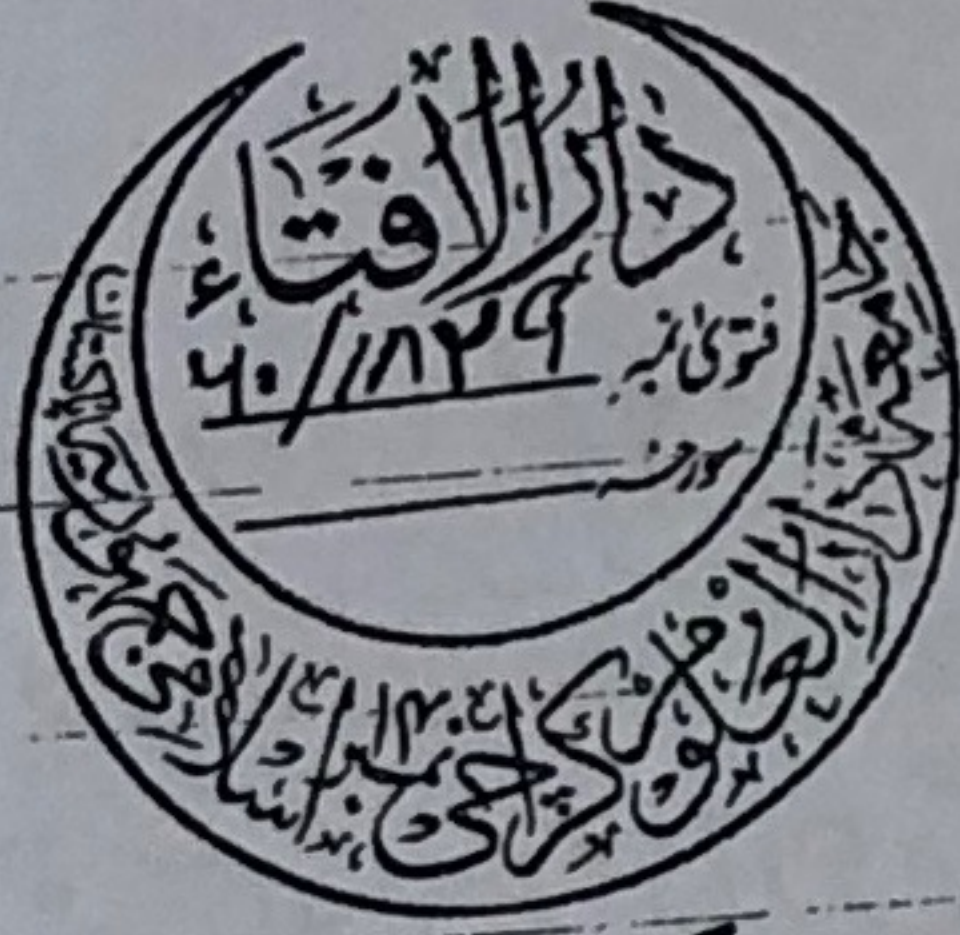 دَارُ الْاِفْتَاء
فتویٰ نمبر ۶۰/۱۸۳۹
مورخہ
جامعہ دار العلوم کراچی نمبر ۱۴ اسلامی جمہوریہ پاکستان